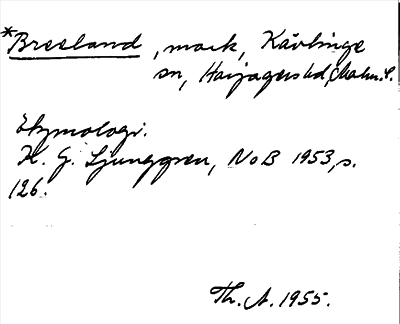 *Breeland, mark, Kävlinge
sn, Harjagers hd, Malm. l.
Etymologi.
K. G. Ljunggren, NoB 1953, s.
126.
Th. A. 1955.